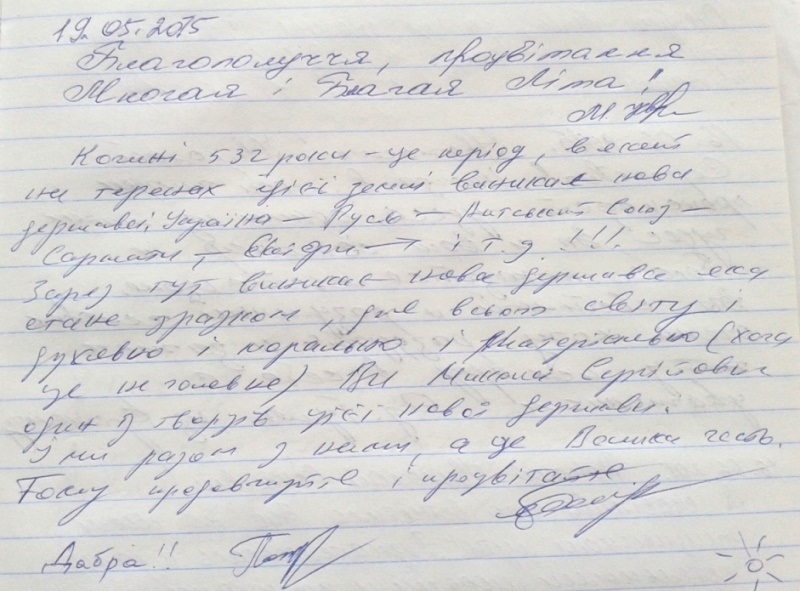 19.05.2015
Благополуччя, процвітання
Многая і Благая Літа!
М.
Кожні 532 роки - це період, в якому
на теренах цієї землі виникає нова
держава, Україна — Русь — Антський Союз —
Сармати — Скіфи — і т.д. !!!
Зараз тут виникає нова держава яка
стане зразком, для всього світу і
духовно і морально і матеріально (хоча
це не головне) Ви Микола Сергійович
один з творців цієї нової держави.
І ми разом з нами, а це Велика честь.
Тому продовжуйте і процвітайте
Дабра!!